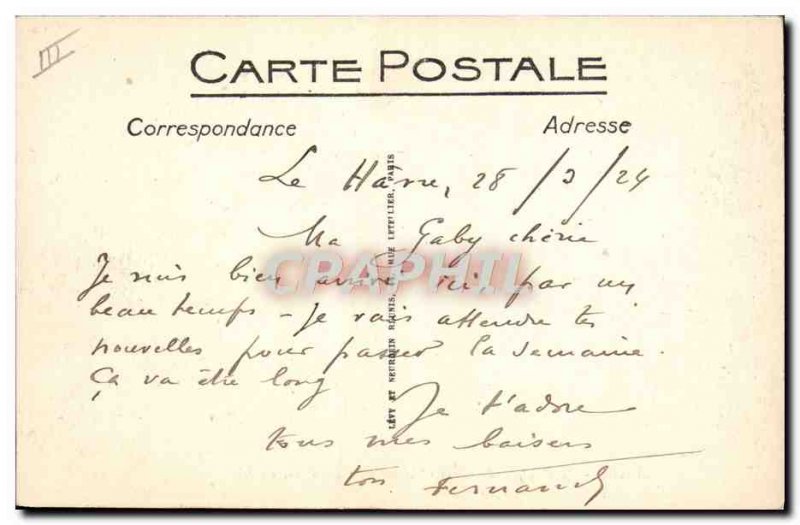 III
CARTE POSTALE
Correspondance
Adresse
Le Hâvre, 28/3/24
Ma Gaby chérie
Je suis bien arrivé ici par un
beau temps - Je vais attendre tes
nouvelles pour passer la semaine.
Ça va être long
Je t'adore
tous mes baisers
ton Fernand
LÉVY ET NEURDEIN RÉUNIS, RUE LETELLIER, PARIS
CPAPHIL